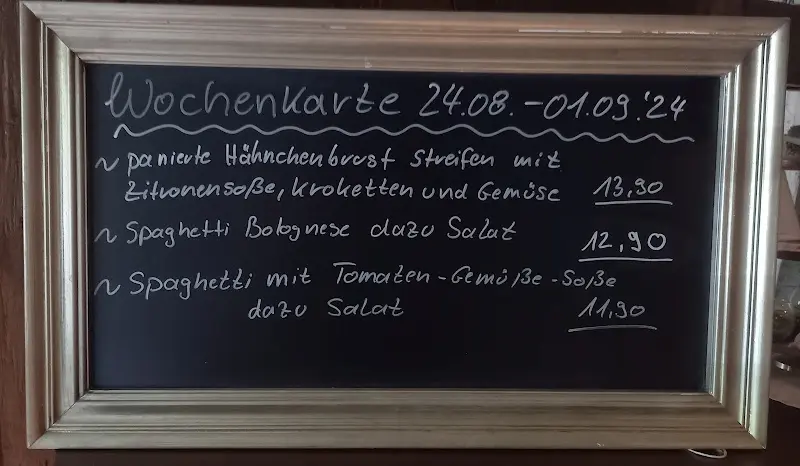 Wochenkarte 24.08.-01.09.'24
~ panierte Hähnchenbrust Streifen mit
Zitronensoße, Kroketten und Gemüse 13,90
~ Spaghetti Bolognese dazu Salat 12,90
~ Spaghetti mit Tomaten-Gemüße-Soße
dazu Salat 11,90